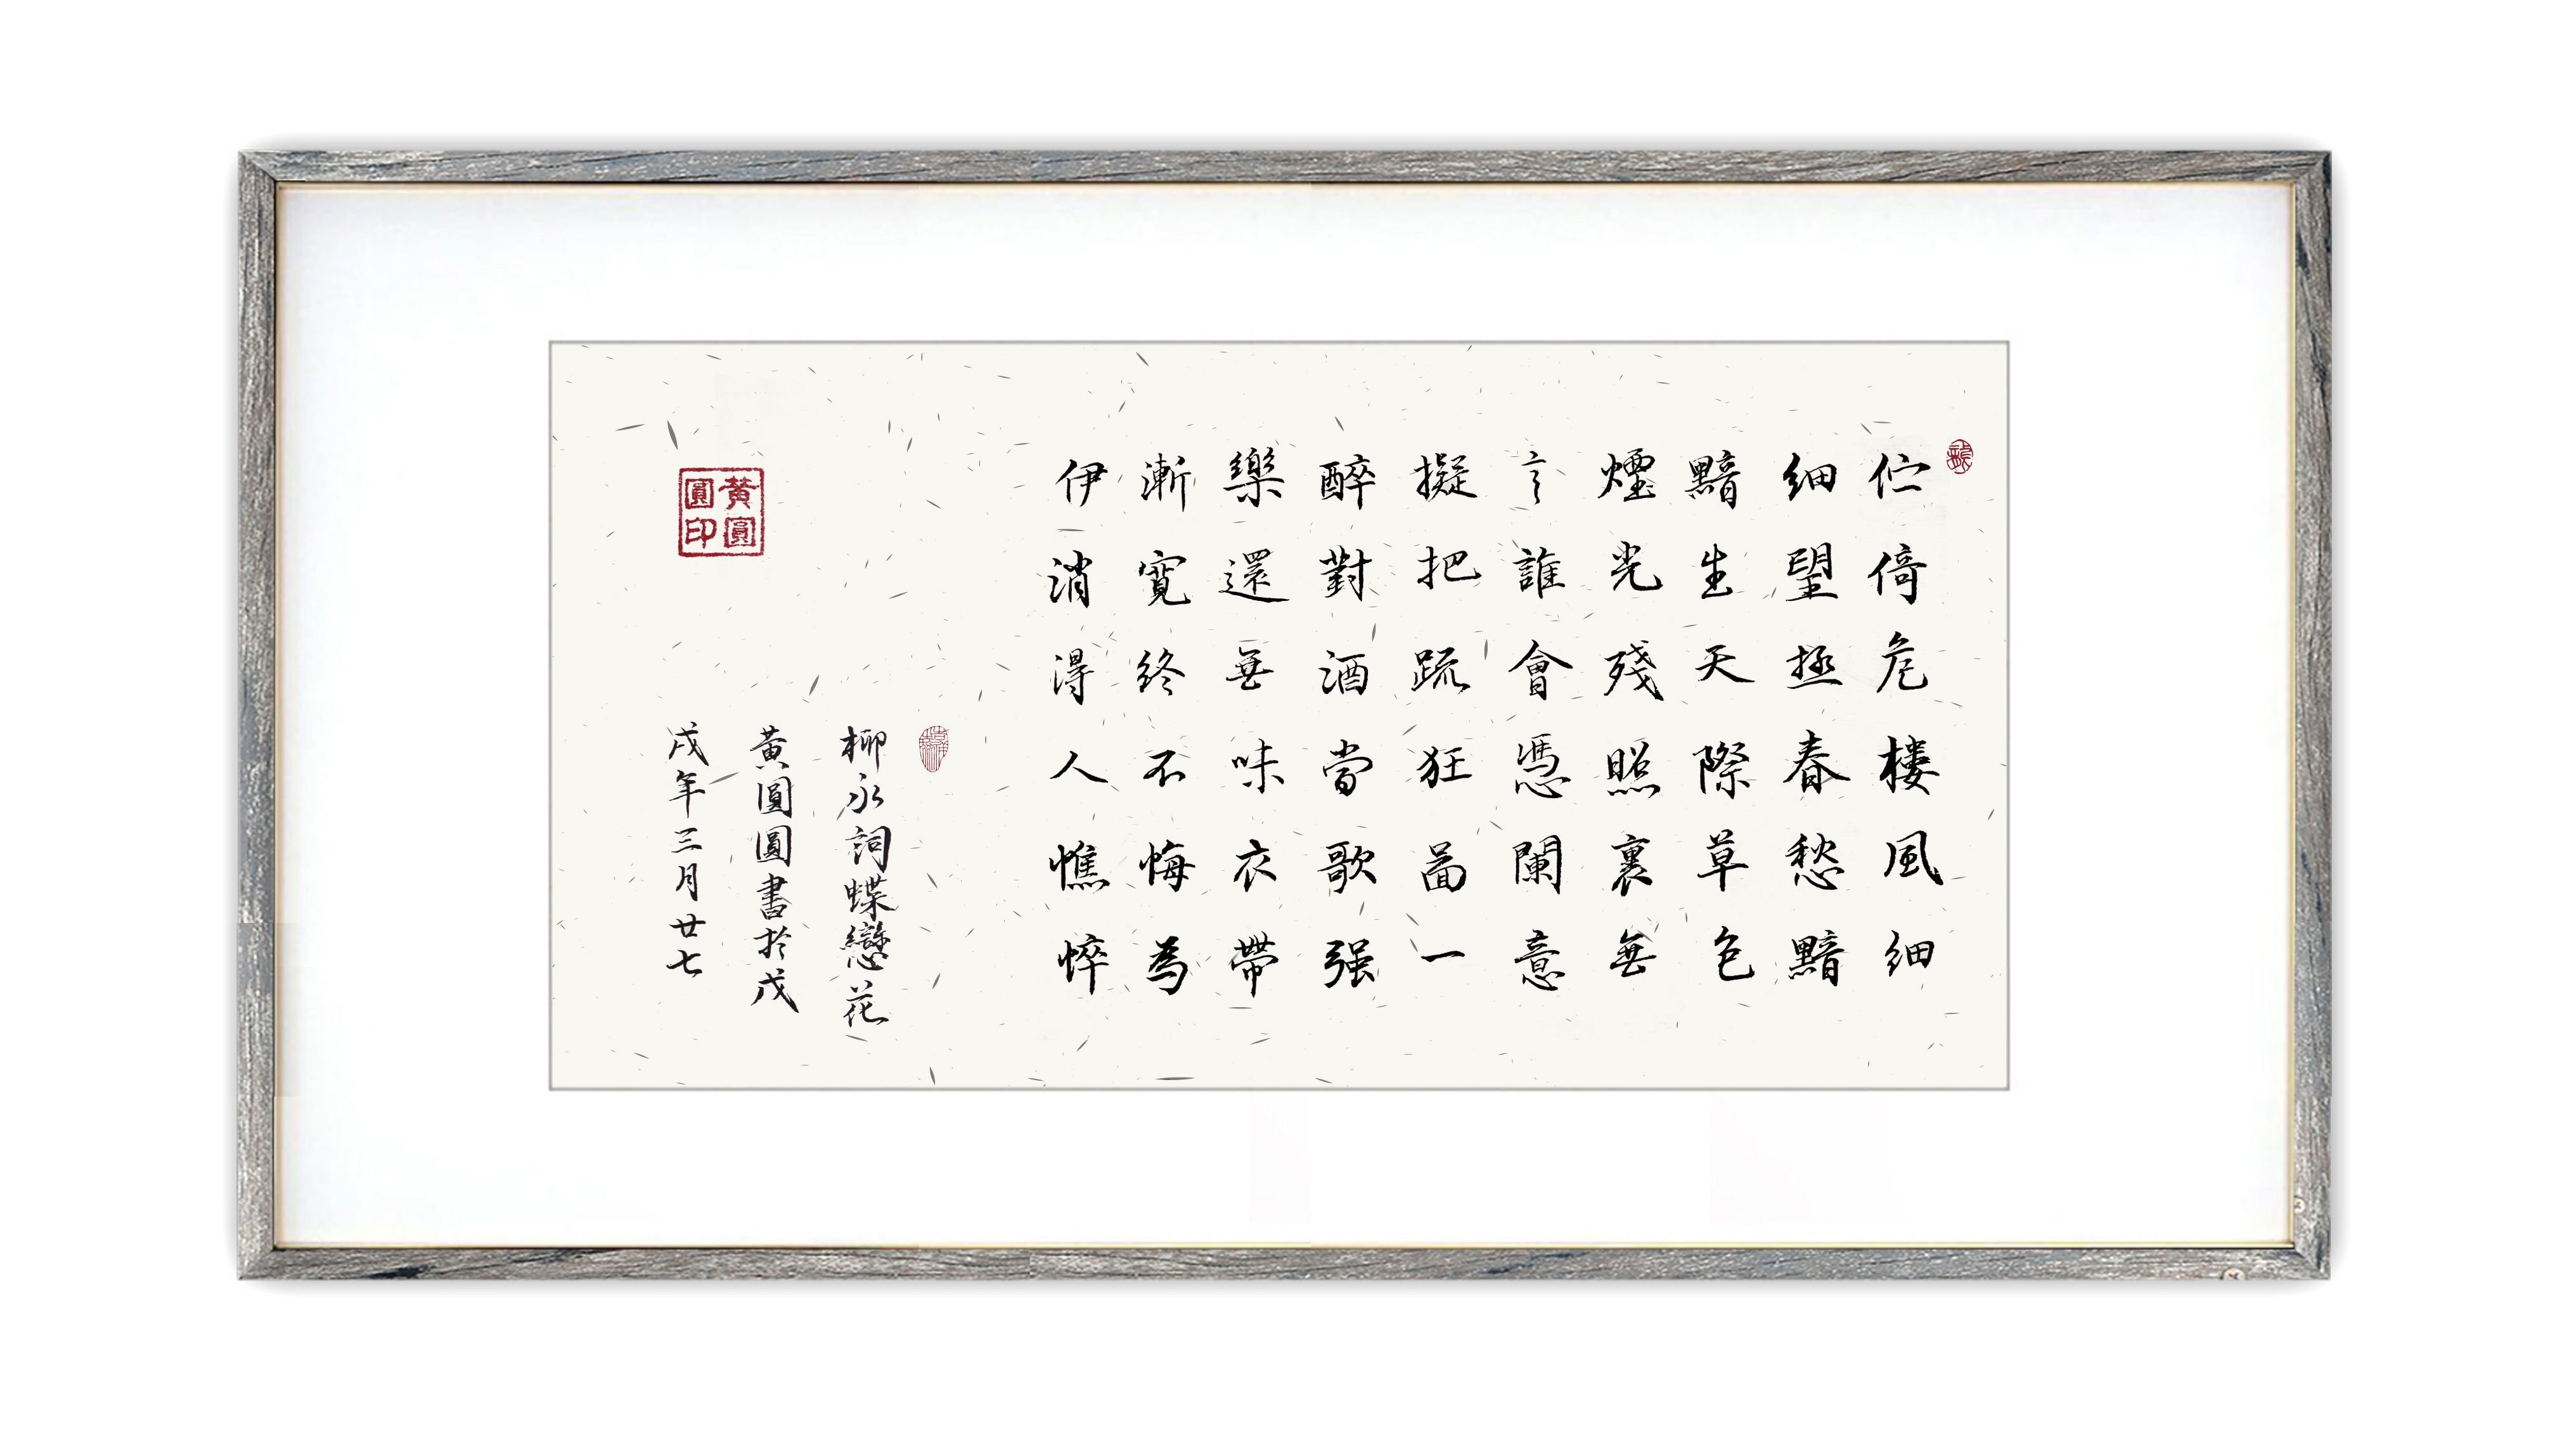 伫倚危楼風細
細望極春愁黯
黯生天際草色
煙光殘照裏無
言誰會憑闌意
擬把疏狂啚一
醉對酒當歌强
樂還無味衣帶
漸寬終不悔為
伊消得人憔悴
柳永詞蝶戀花
黃圓圓書於戊
戌年三月廿七
黃圓圓印